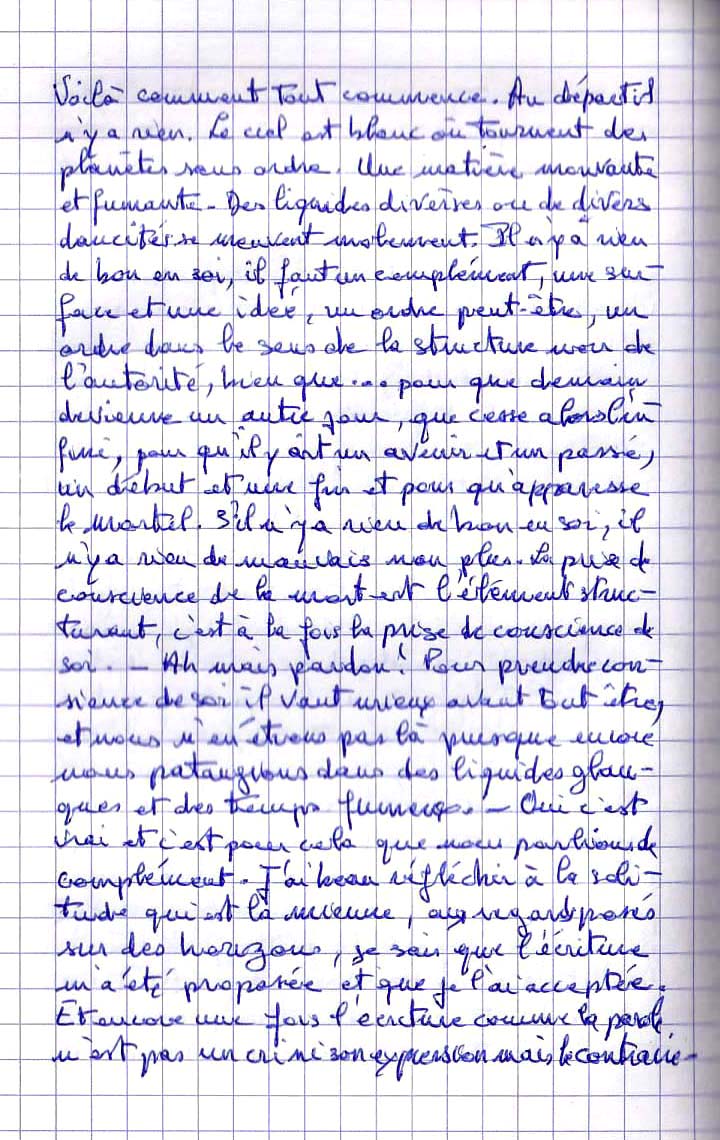 Voilà comment tout commence. Au départ il
n'y a rien. Le ciel est blanc où tournent des
planètes sans ordre. Une matière mouvante
et fumante. Des liquides diverses ou de divers
se meuvent mollement. Il n'y a rien
de bon en soi, il faut un complément, une sur-
face et une idée, un ordre peut-être, un
ordre dans le sens de la structure non de
l'autorité, bien que... pour que demain
devienne un autre jour, que cesse alors l'in
fini, pour qu'il y ait un avenir et un passé,
un début et une fin et pour qu'apparesse
le mortel. S'il n'y a rien de bon en soi, il
n'y a rien de mauvais non plus. La prise de
conscience de la mort est l'élément struc-
turant, c'est à la fois la prise de conscience de
soi. - Ah mais pardon! Pour prendre con-
sience de soi il vaut mieux avant tout être,
et nous n'en étions pas là puisque encore
nous pataugions dans des liquides glau-
ques et des temps fumeux. - Oui c'est
vrai et c'est pour cela que nous parlions de
complément. J'ai beau réfléchir à la soli-
tude qui est la mienne, aux regards posés
sur des horizons, je sais que l'écriture
m'a été proposée et que je l'ai acceptée.
Et encore une fois l'écriture comme la parole
n'est pas un crime son expression mais le contraire-